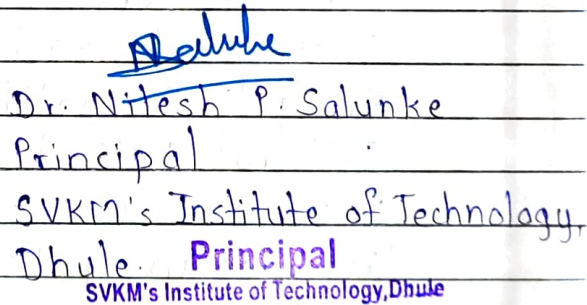 Dr. Nitesh P. Salunke
Principal
SVKM's Institute of Technology,
Dhule. Principal
SVKM's Institute of Technology,Dhule